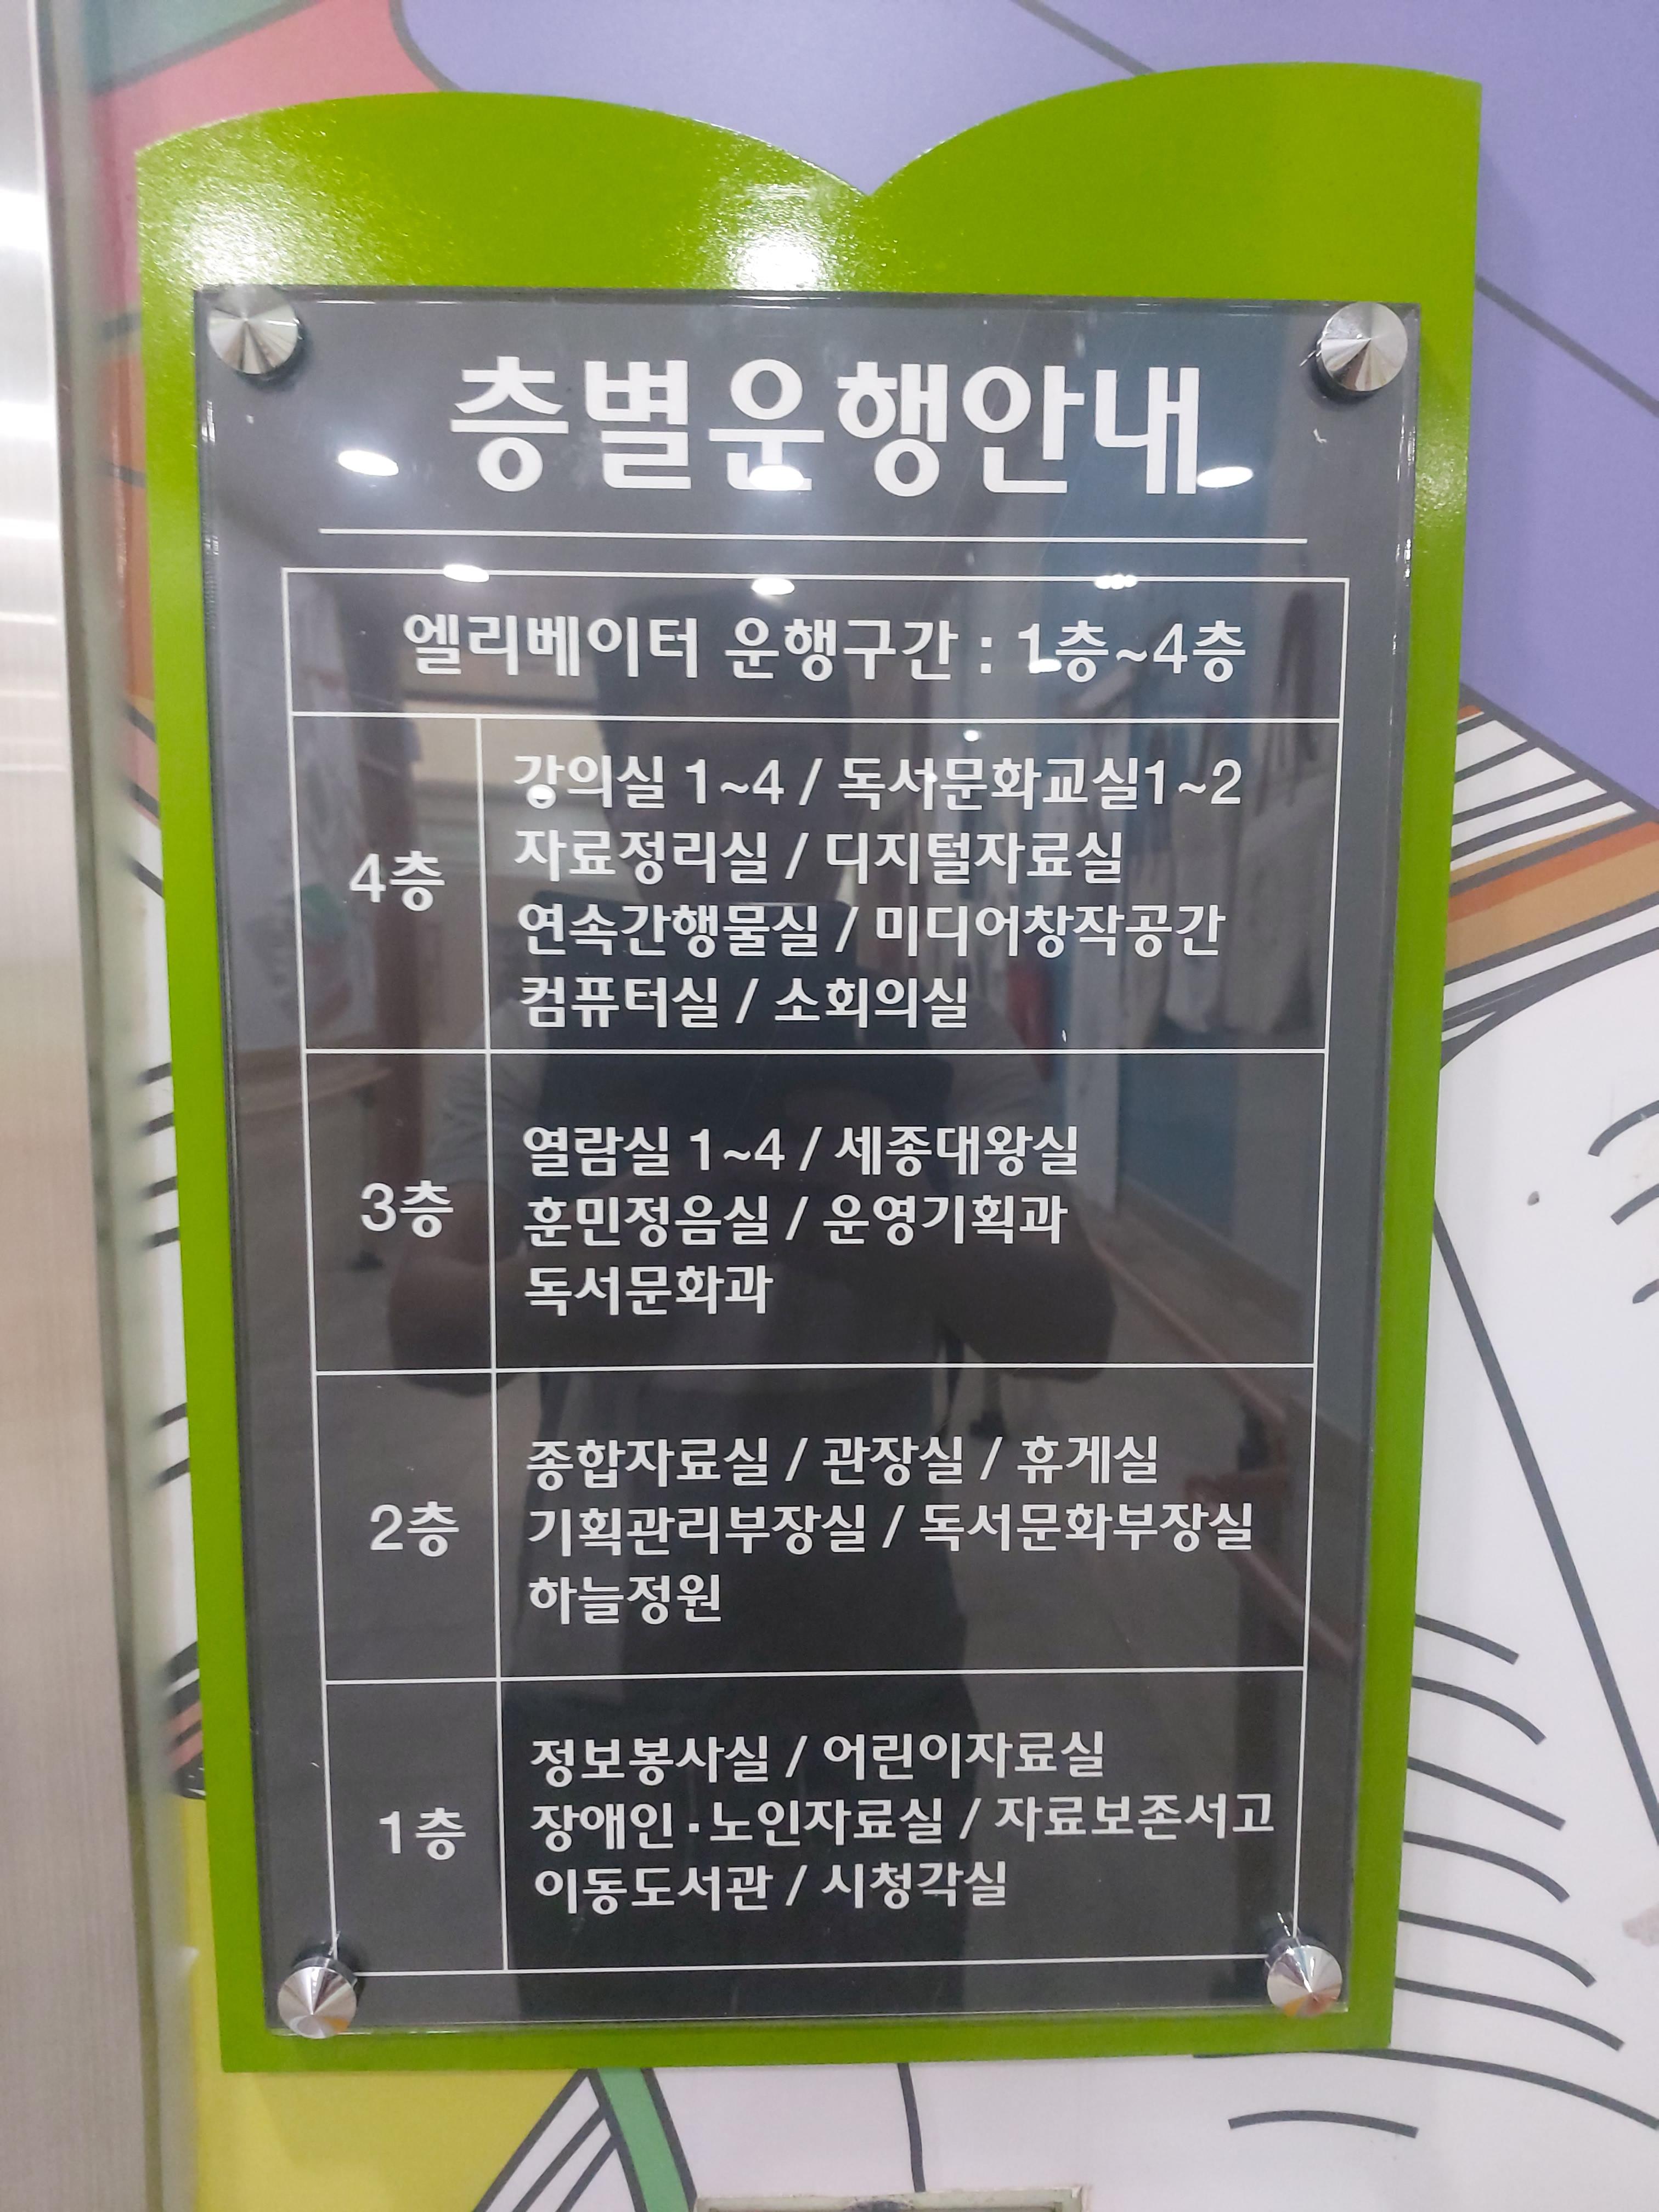 층별운행안내
엘리베이터 운행구간 : 1층~4층
4층
강의실 1~4 / 독서문화교실1~2
자료정리실 / 디지털자료실
연속간행물실 / 미디어창작공간
컴퓨터실 / 소회의실
3층
열람실 1~4 / 세종대왕실
훈민정음실 / 운영기획과
독서문화과
2층
종합자료실 / 관장실 / 휴게실
기획관리부장실 / 독서문화부장실
하늘정원
1층
정보봉사실 / 어린이자료실
장애인·노인자료실 / 자료보존서고
이동도서관 / 시청각실